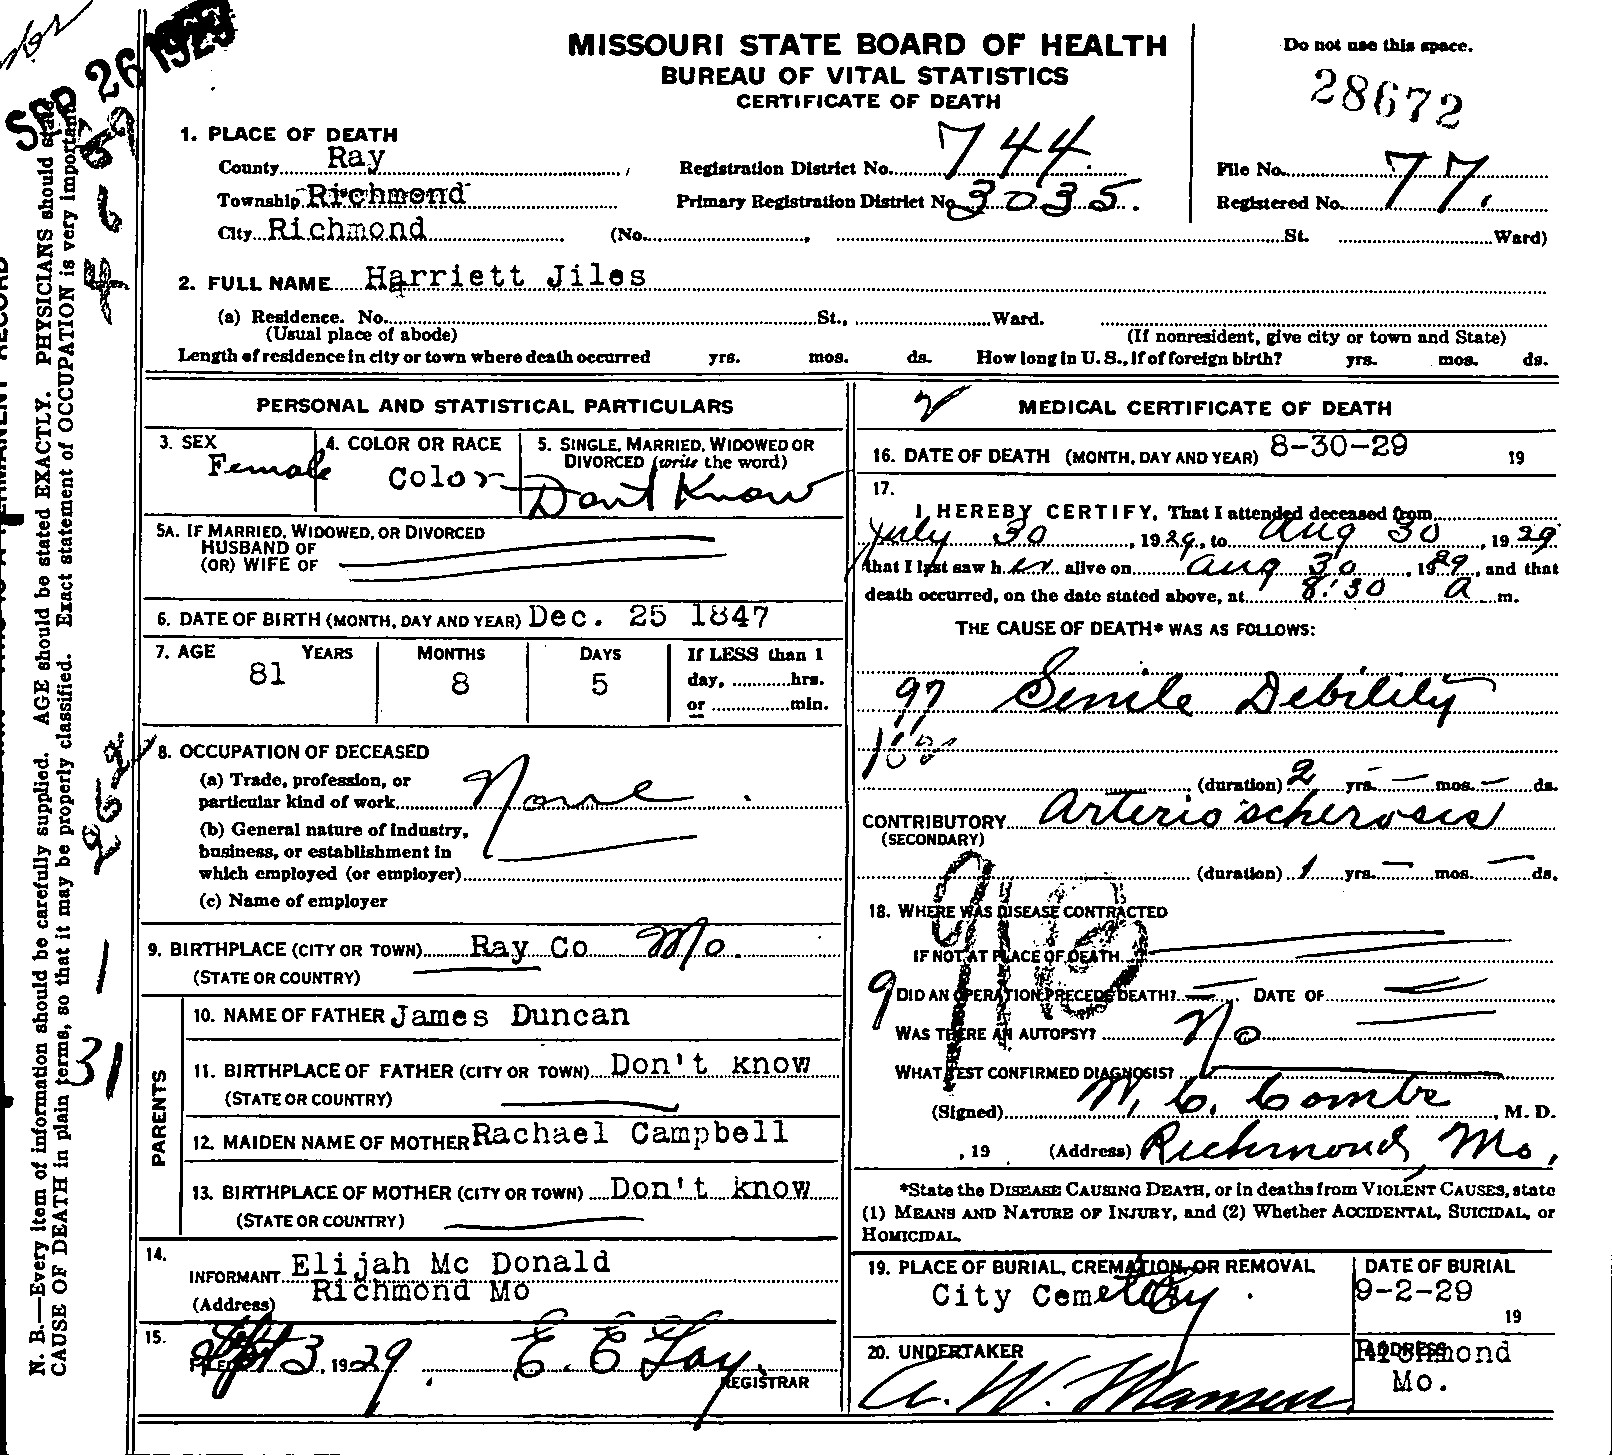 SEP 26 1929
MISSOURI STATE BOARD OF HEALTH
BUREAU OF VITAL STATISTICS
CERTIFICATE OF DEATH
Do not use this space.
28672
1. PLACE OF DEATH
County Ray
Registration District No. 744
File No. 77
Township Richmond
Primary Registration District No. 3035.
Registered No. 77.
City Richmond (No. , St. Ward)
2. FULL NAME Harriett Jiles
(a) Residence. No. St., Ward.
(Usual place of abode) (If nonresident, give city or town and State)
Length of residence in city or town where death occurred yrs. mos. ds. How long in U.S., if of foreign birth? yrs. mos. ds.
PERSONAL AND STATISTICAL PARTICULARS
3. SEX
Female
4. COLOR OR RACE
Color
5. SINGLE, MARRIED, WIDOWED OR
DIVORCED (write the word)
Dont Know
5A. IF MARRIED, WIDOWED, OR DIVORCED
HUSBAND OF
(OR) WIFE OF
6. DATE OF BIRTH (MONTH, DAY AND YEAR) Dec. 25 1847
7. AGE YEARS MONTHS DAYS If LESS than 1
81 8 5 day, hrs.
or min.
8. OCCUPATION OF DECEASED
(a) Trade, profession, or
particular kind of work None
(b) General nature of industry,
business, or establishment in
which employed (or employer)
(c) Name of employer
9. BIRTHPLACE (CITY OR TOWN) Ray Co Mo.
(STATE OR COUNTRY)
PARENTS
10. NAME OF FATHER James Duncan
11. BIRTHPLACE OF FATHER (CITY OR TOWN) Don't know
(STATE OR COUNTRY)
12. MAIDEN NAME OF MOTHER Rachael Campbell
13. BIRTHPLACE OF MOTHER (CITY OR TOWN) Don't know
(STATE OR COUNTRY)
14.
INFORMANT Elijah Mc Donald
(Address) Richmond Mo
15.
FILED Sept 3, 1929 E. E. Gay.
REGISTRAR
MEDICAL CERTIFICATE OF DEATH
16. DATE OF DEATH (MONTH, DAY AND YEAR) 8-30-29 19
17.
I HEREBY CERTIFY, That I attended deceased from
July 30, 1929, to Aug 30, 1929
that I last saw her alive on Aug 30, 1929, and that
death occurred, on the date stated above, at 8:30 a m.
THE CAUSE OF DEATH* WAS AS FOLLOWS:
97 Senile Debility
(duration) 2 yrs. — mos. — ds.
CONTRIBUTORY Arterio scherosis
(SECONDARY)
(duration) 1 yrs. — mos. — ds.
18. WHERE WAS DISEASE CONTRACTED
IF NOT AT PLACE OF DEATH
DID AN OPERATION PRECEDE DEATH? — DATE OF
WAS THERE AN AUTOPSY? No
WHAT TEST CONFIRMED DIAGNOSIS?
(Signed) W. C. Combs, M. D.
, 19 (Address) Richmond, Mo.
*State the DISEASE CAUSING DEATH, or in deaths from VIOLENT CAUSES, state
(1) MEANS AND NATURE OF INJURY, and (2) Whether ACCIDENTAL, SUICIDAL, or
HOMICIDAL.
19. PLACE OF BURIAL, CREMATION, OR REMOVAL
City Cemetery.
DATE OF BURIAL
9-2-29
19
20. UNDERTAKER
A. W.
ADDRESS
Richmond
Mo.
N. B.—Every item of information should be carefully supplied. AGE should be stated EXACTLY. PHYSICIANS should state
CAUSE OF DEATH in plain terms, so that it may be properly classified. Exact statement of OCCUPATION is very important.
31